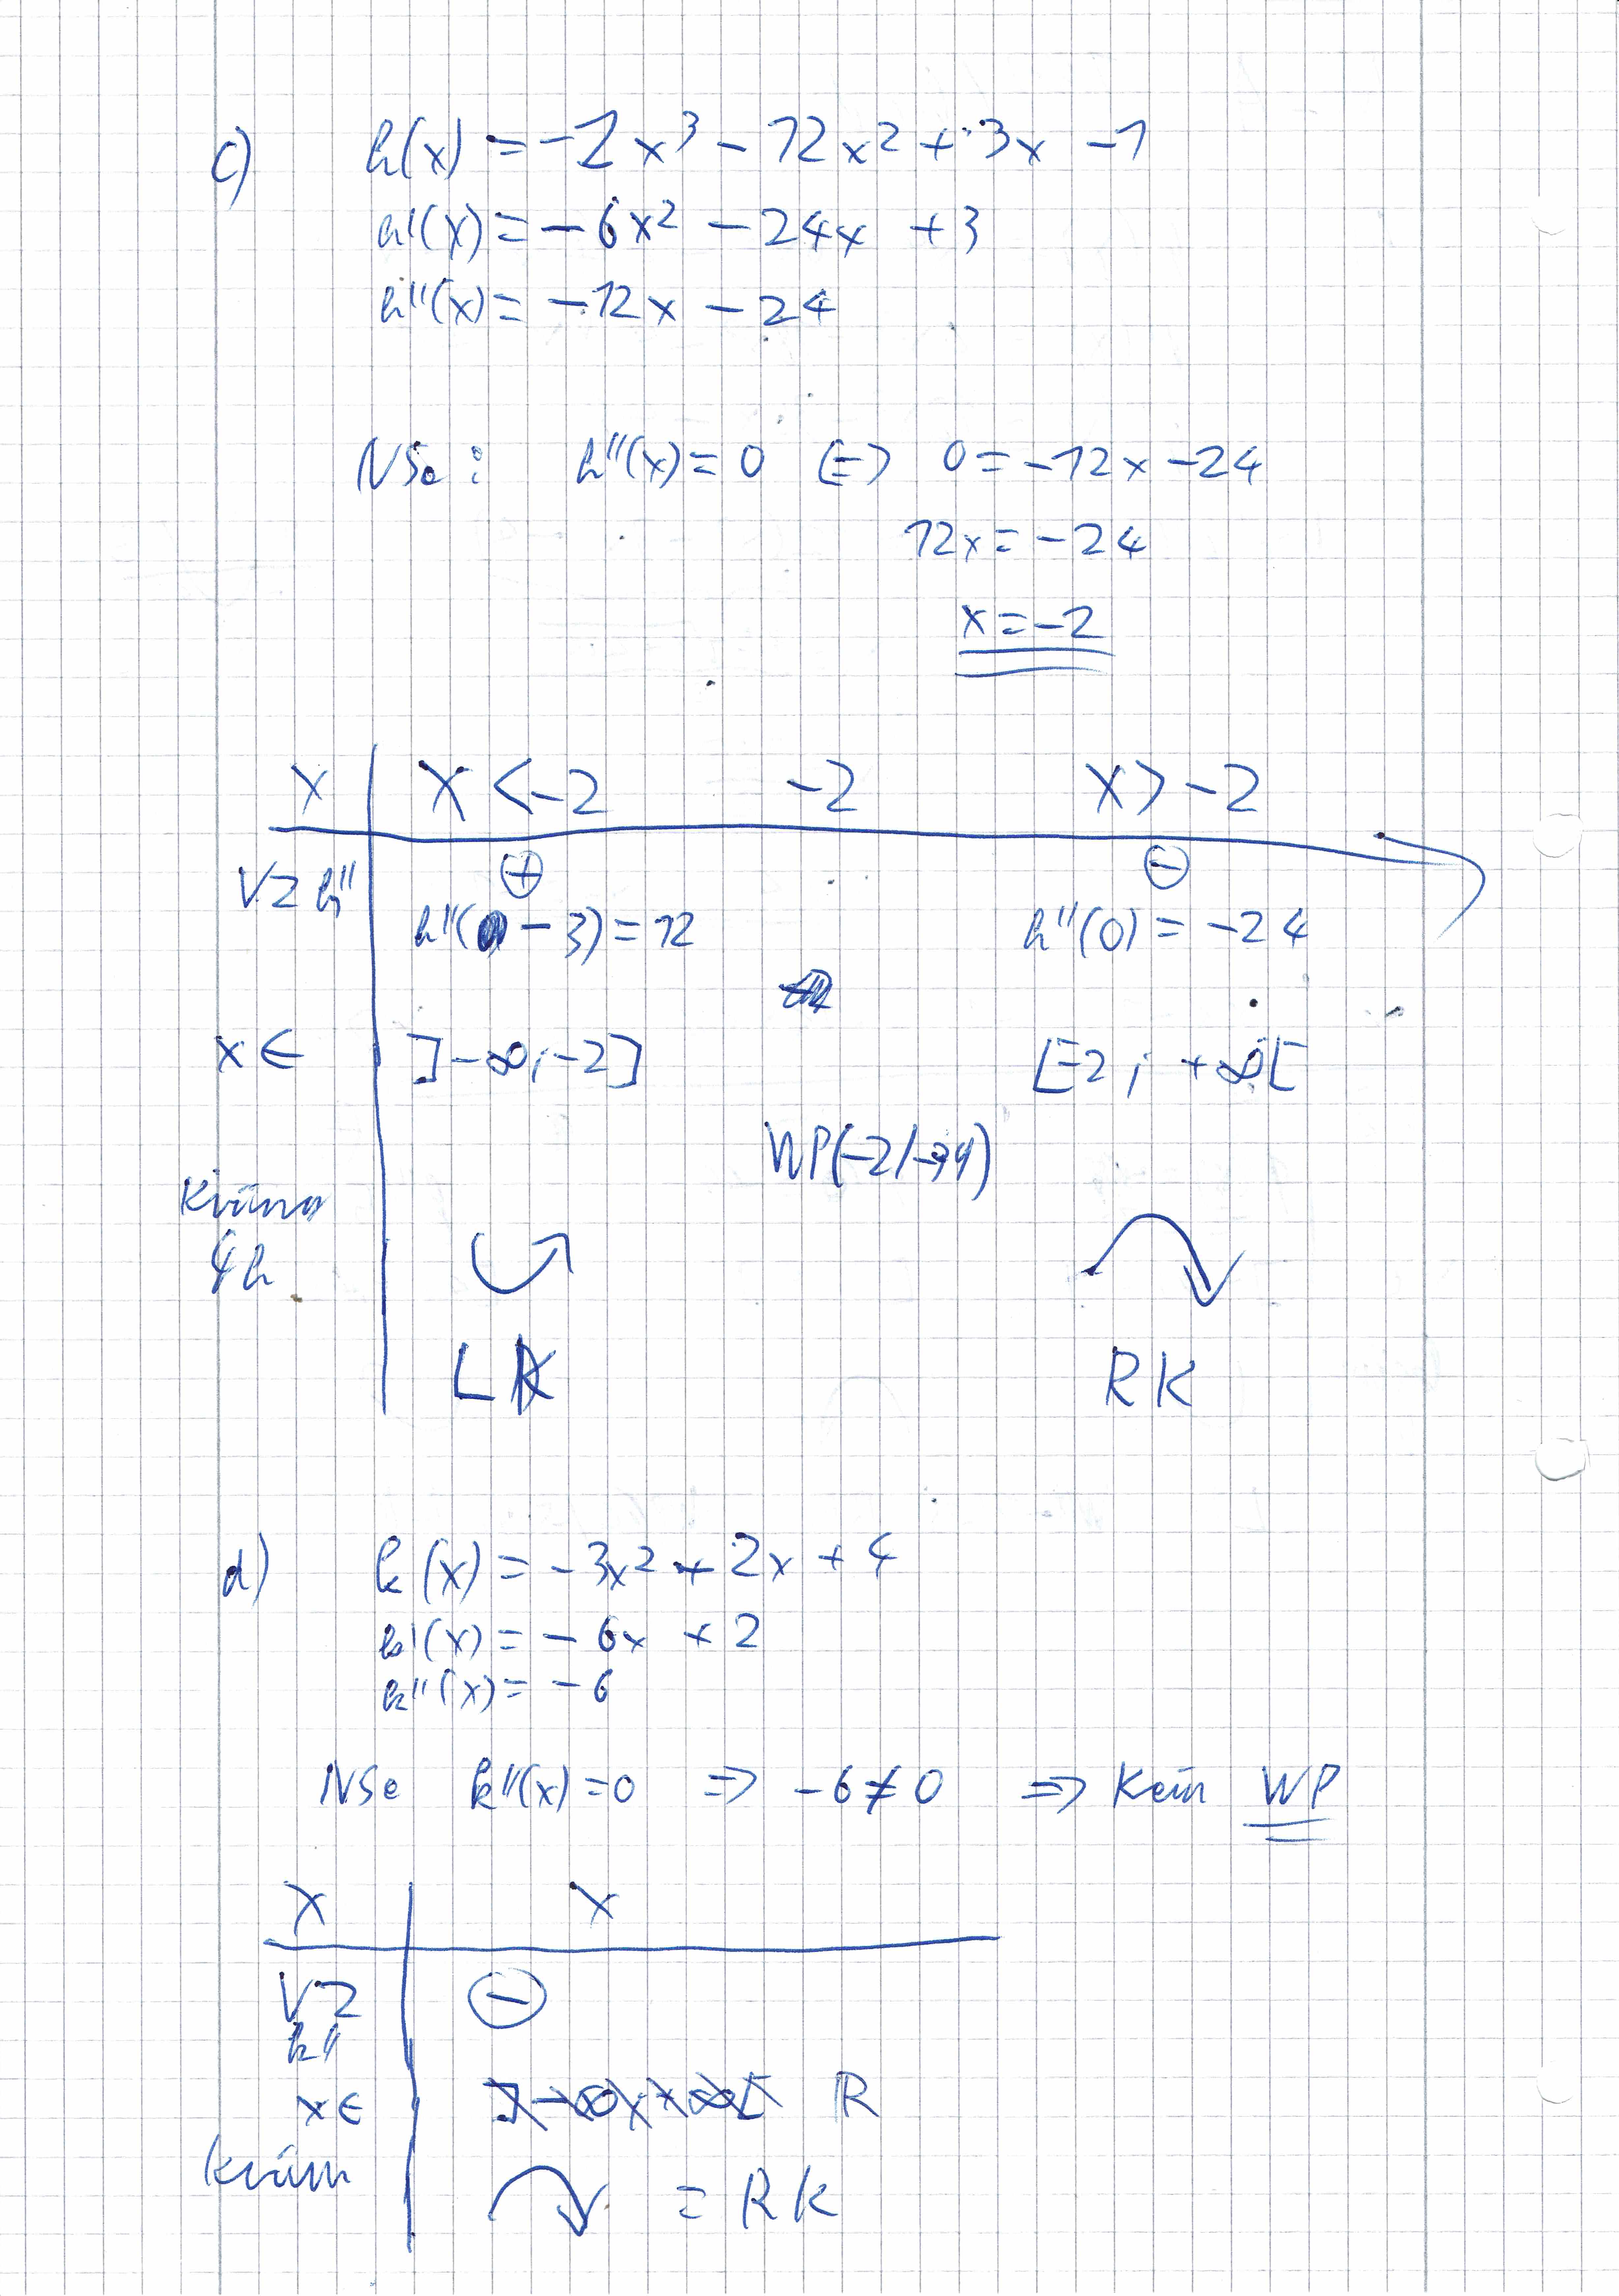 c) h(x) = -2x³ - 12x² + 3x - 1
h'(x) = -6x² - 24x + 3
h''(x) = -12x - 24
NSe: h''(x) = 0 (=) 0 = -12x - 24
12x = -24
x = -2
x | x < -2 -2 x > -2
VZ h'' | ⊕ ⊖
h''(-3) = 12 h''(0) = -24
x ∈ | ]-∞; -2] [-2; +∞[
WP(-2/-39)
Krümg
Gh
LK RK
d) k(x) = -3x² + 2x + 4
k'(x) = -6x + 2
k''(x) = -6
NSe k''(x) = 0 => -6 ≠ 0 => Kein WP
x | x
VZ | ⊖
k''
x ∈ | ]-∞; +∞[ ℝ
Krüm | = RK